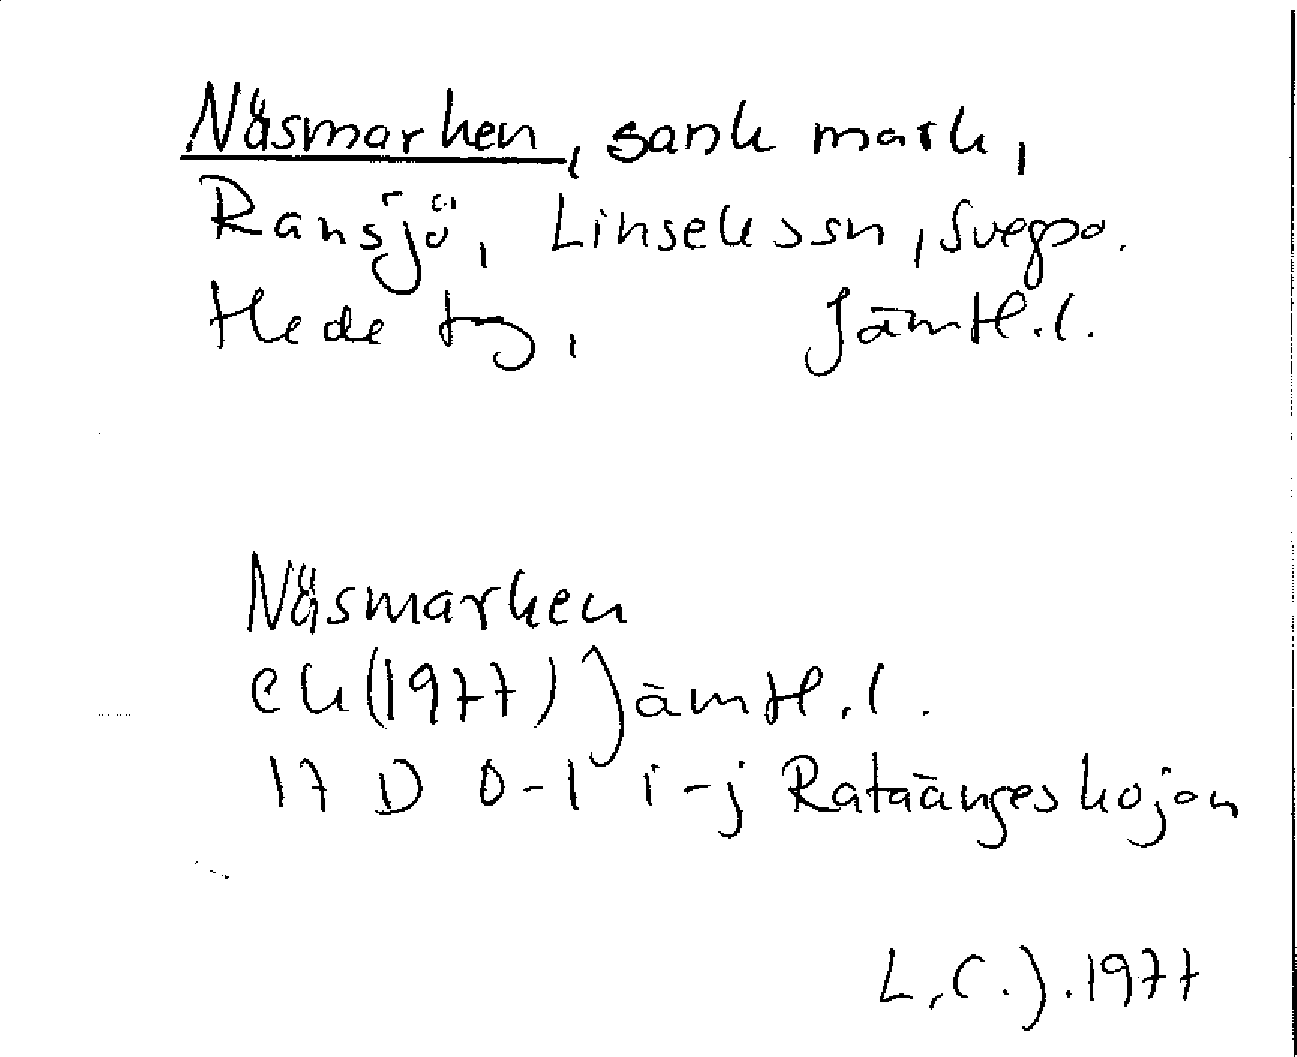 Näsmarken, sank mark,
Ransjö, Linsellssn, Svegso.
Hede tg, Jämtl.l.
Näsmarken
ek(1977) Jämtl.l.
17 D 0-1 i-j Rataängeskojan
L.C.J. 1977